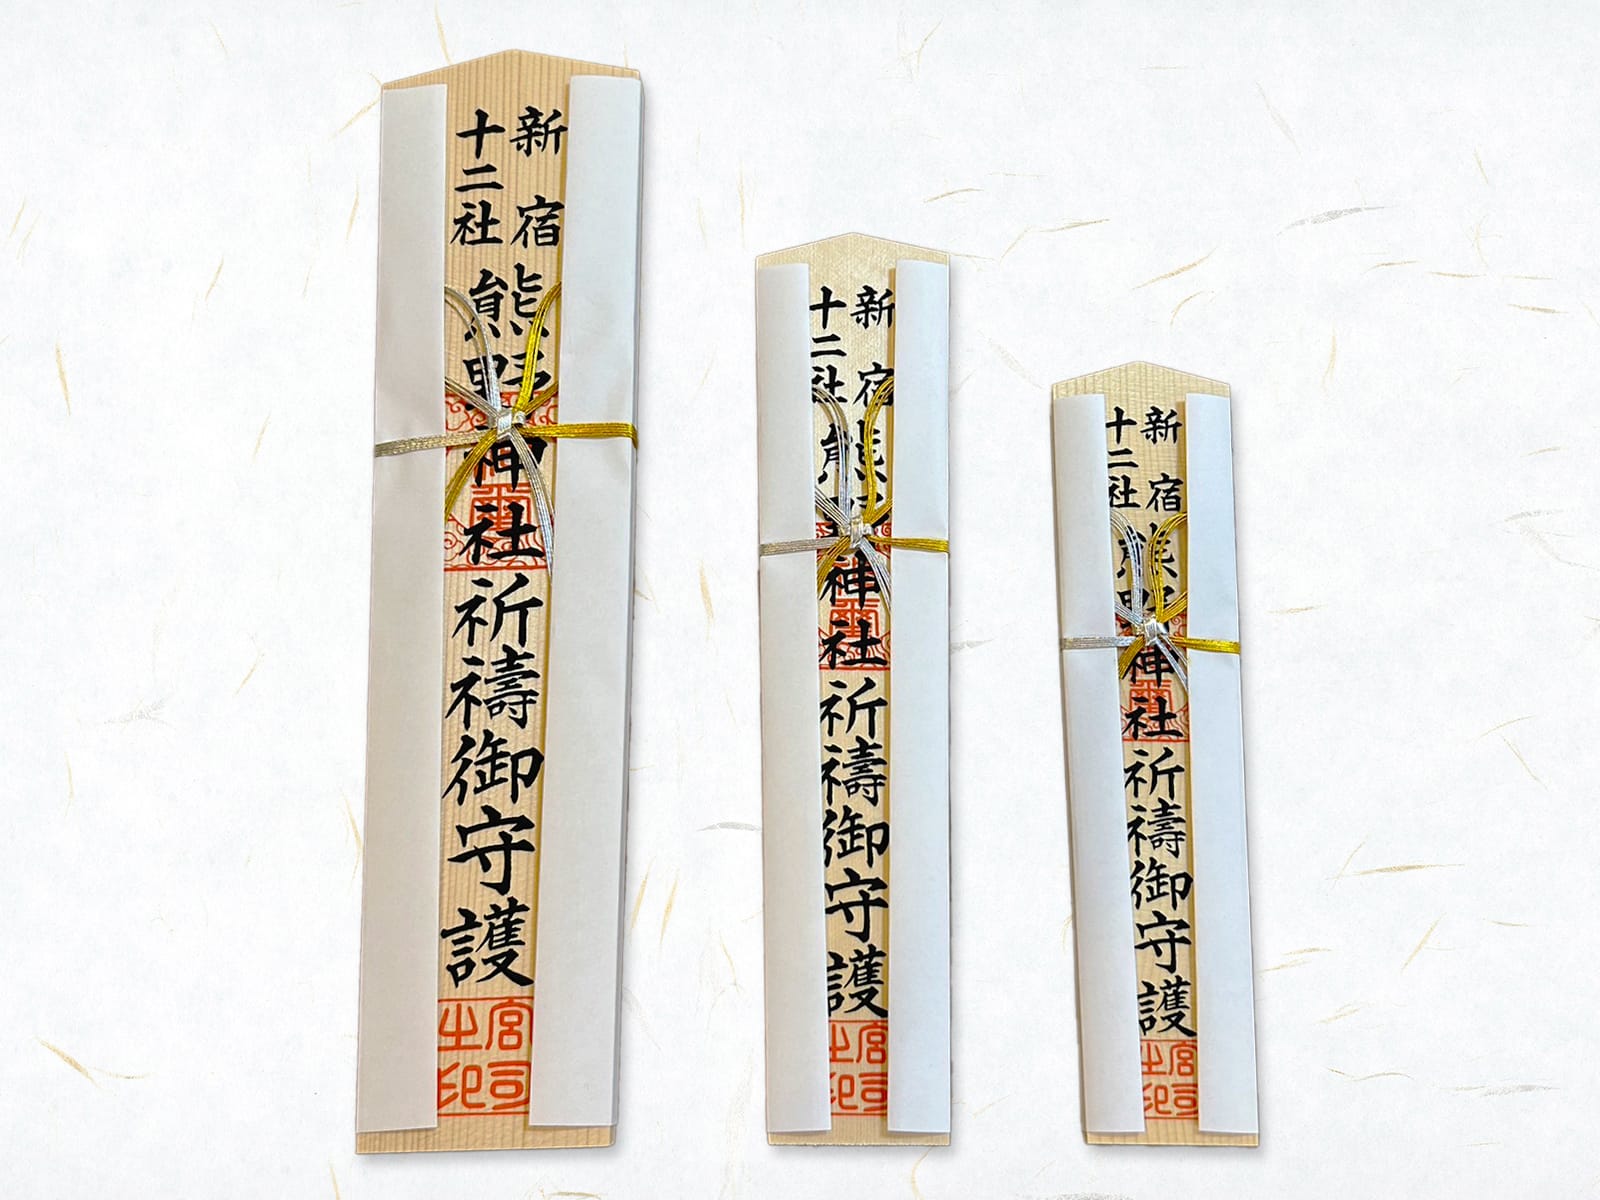 新宿
十二社
熊野神社祈禱御守護
宮司之印
新宿
十二社
熊野神社祈禱御守護
宮司之印
新宿
十二社
熊野神社祈禱御守護
宮司之印